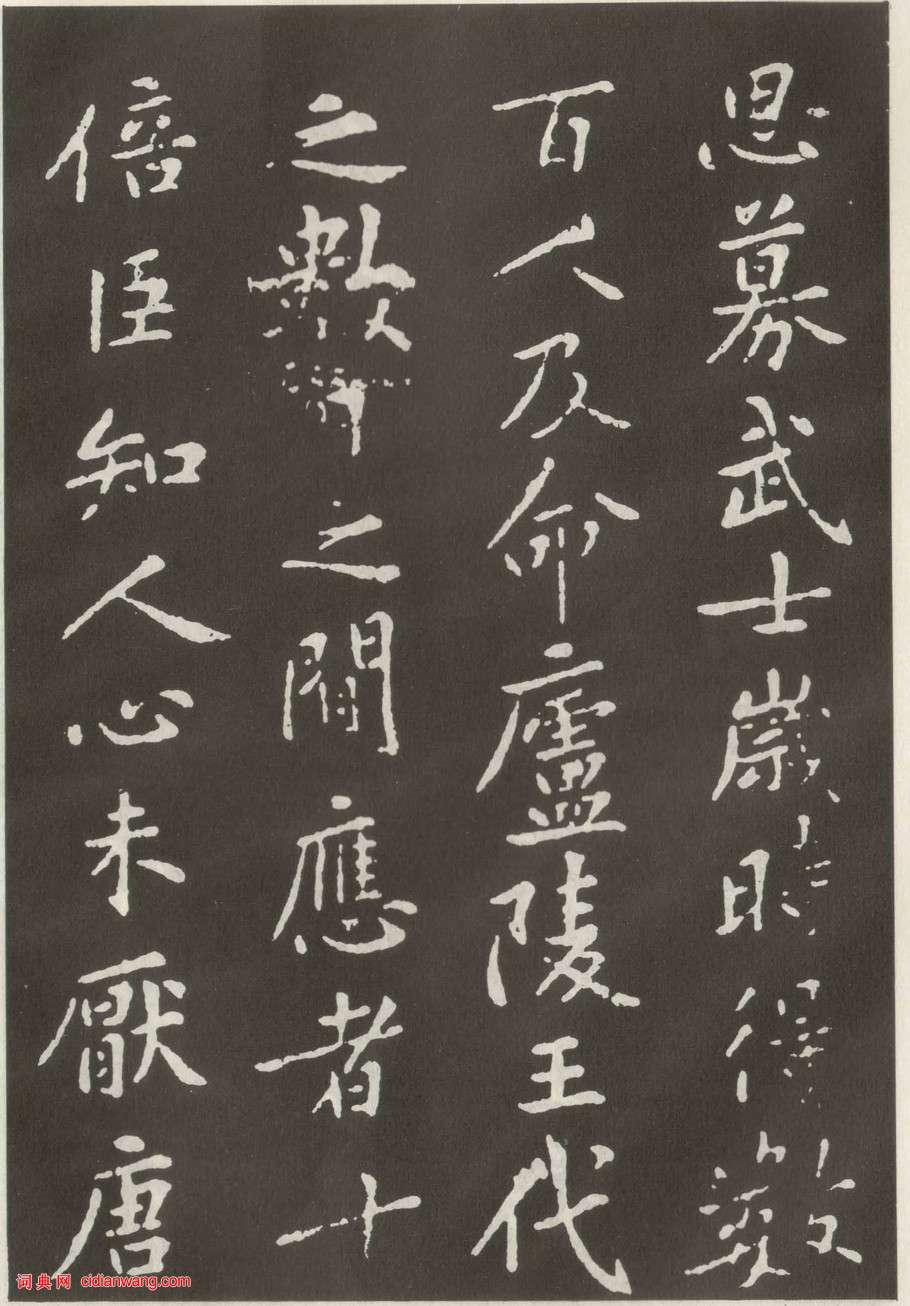 思募武士歲時得數
百人及命廬陵王代
之數之間應者十
倍臣知人心未厭唐
词典网 cidianwang.com